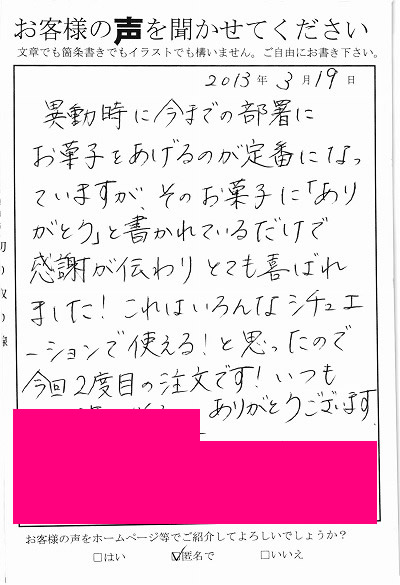 お客様の声を聞かせてください
文章でも箇条書きでもイラストでも構いません。ご自由にお書き下さい。
2013年 3月 19日
異動時に今までの部署に
お菓子をあげるのが定番になっ
ていますが、そのお菓子に「あり
がとう」と書かれているだけで
感謝が伝わりとても喜ばれ
ました！これはいろんなシチュエ
ーションで使える！と思ったので
今回2度目の注文です！いつも
ありがとうございます
お客様の声をホームページ等でご紹介してよろしいでしょうか？
□はい ☑匿名で □いいえ